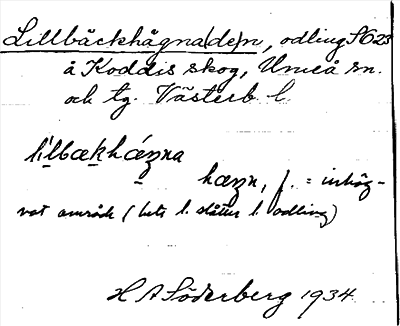 Lillbäckhägna(de)n, odling S623
å Koddis skog, Umeå sn.
och tg. Västerb. l.
lilbækhæŋna
hæŋn, f. = inhäg-
nat område (bete l. slåtter l. odling)
H A Söderberg 1934